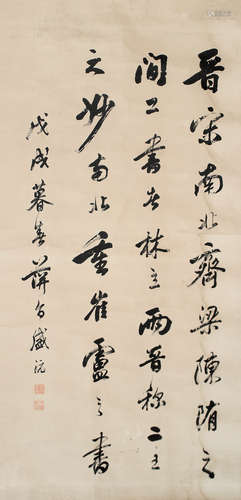 晋宋南北齊梁陳隋之
間工書者林立兩晋称二王
之妙南北重崔盧之書
戊戌暮春薛台盛沅